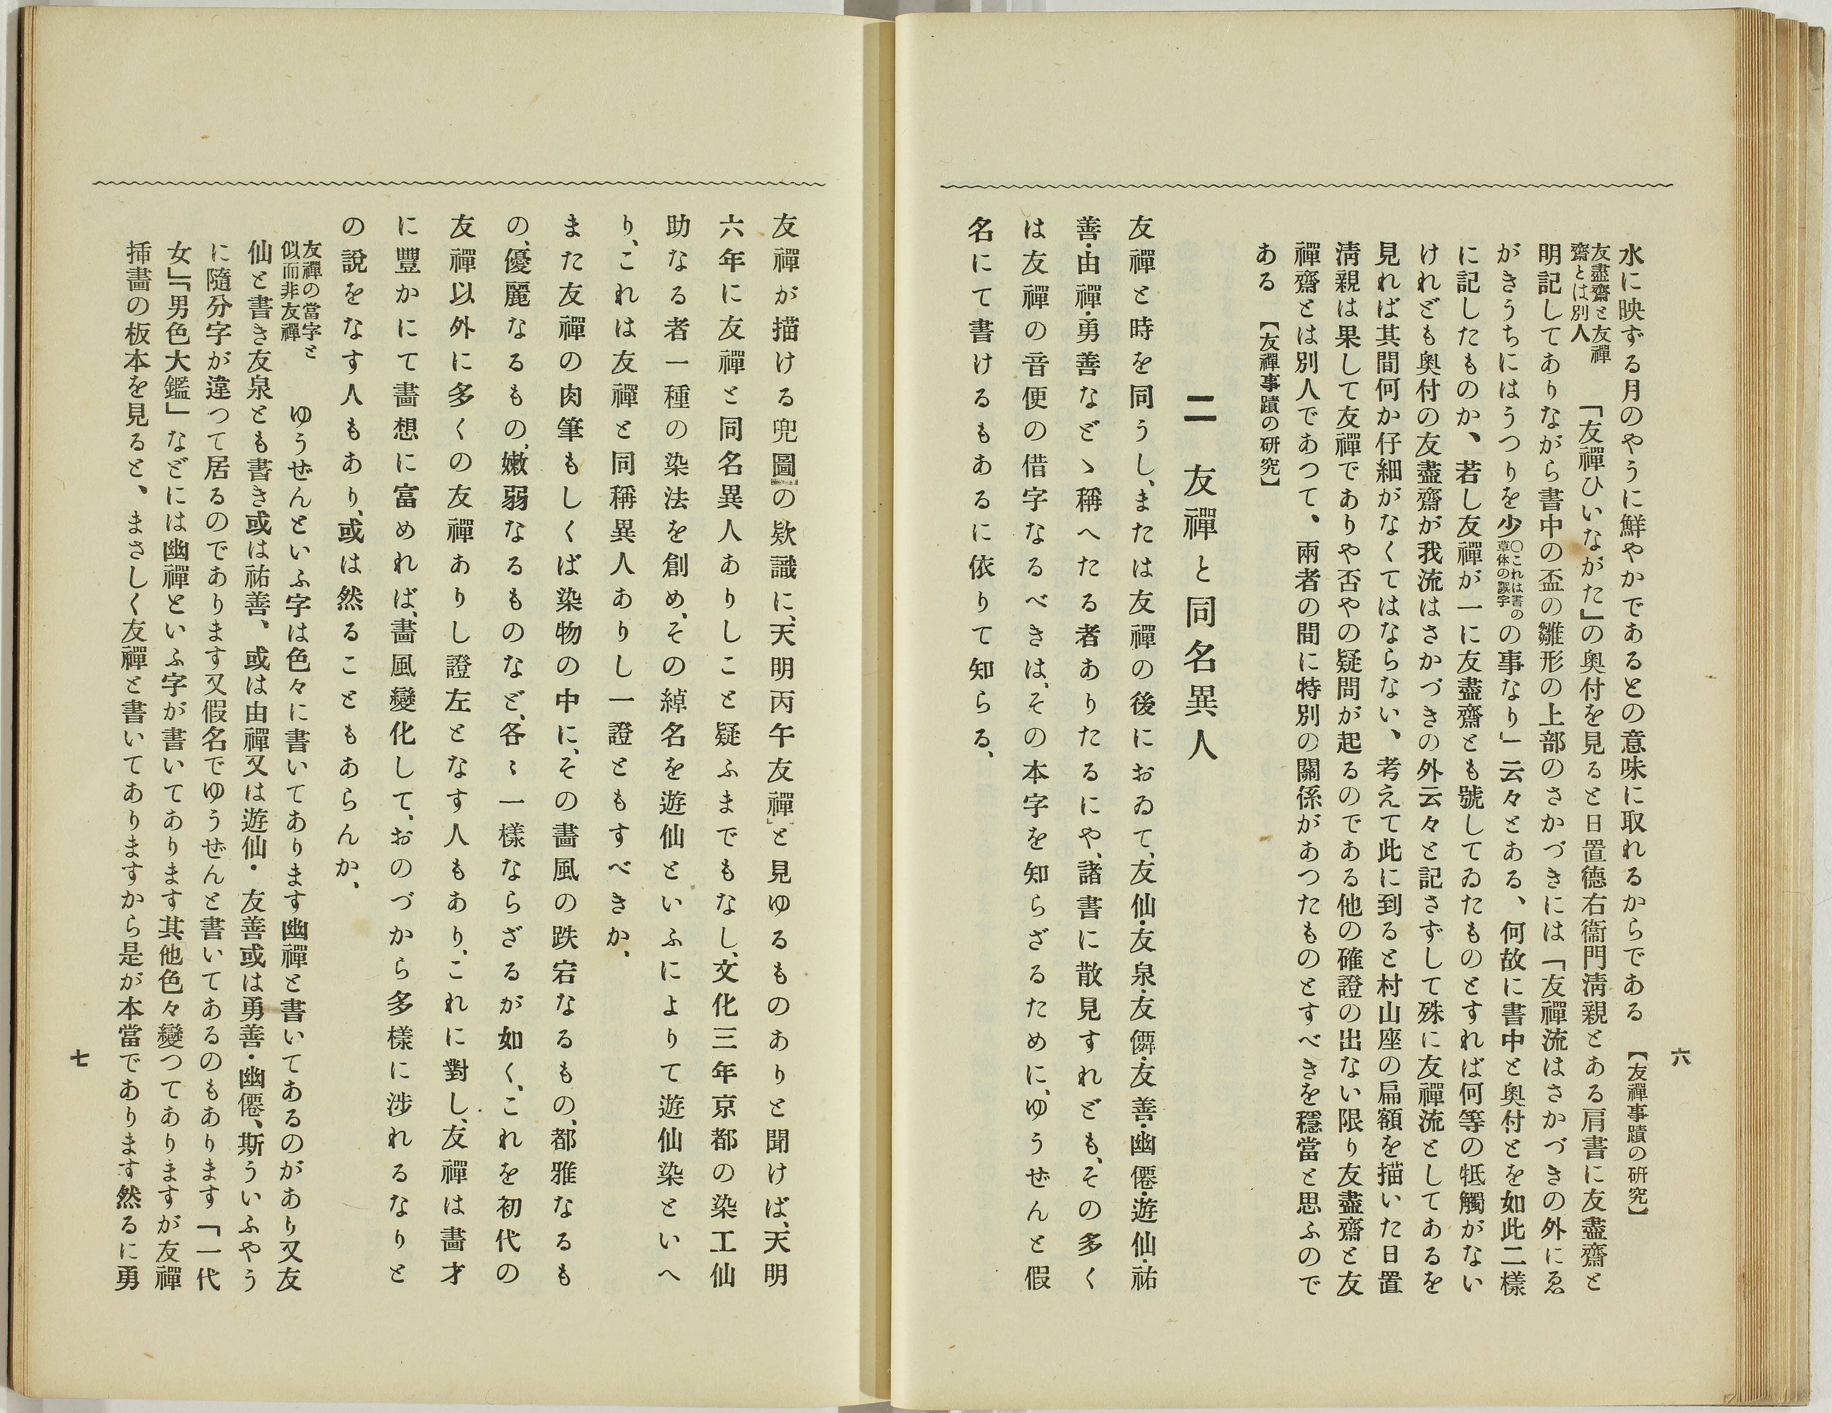 六
水に映ずる月のやうに鮮やかであるとの意味に取れるからである 【友禪事蹟の研究】
友盡齋と友禪
齋とは別人
「友禪ひいながた」の奥付を見ると日置德右衞門淸親とある肩書に友盡齋と
明記してありながら書中の盃の雛形の上部のさかづきには「友禪流はさかづきの外にゑ
がきうちにはうつりを少〇これは書の草体の誤字の事なり」云々とある、何故に書中と奥付とを如此二樣
に記したものか、若し友禪が一に友盡齋とも號してゐたものとすれば何等の牴觸がない
けれども奥付の友盡齋が我流はさかづきの外云々と記さずして殊に友禪流としてあるを
見れば其間何か仔細がなくてはならない、考えて此に到ると村山座の扁額を描いた日置
淸親は果して友禪でありや否やの疑問が起るのである他の確證の出ない限り友盡齋と友
禪齋とは別人であつて、兩者の間に特別の關係があつたものとすべきを穩當と思ふので
ある 【友禪事蹟の研究】
二 友禪と同名異人
友禪と時を同うし、または友禪の後におゐて、友仙・友泉・友僲・友善・幽僊・遊仙・祐
善・由禪・勇善などゝ稱へたる者ありたるにや、諸書に散見すれども、その多く
は友禪の音便の借字なるべきは、その本字を知らざるために、ゆうぜんと假
名にて書けるもあるに依りて知らる、
友禪が描ける兜圖の欵識に、天明丙午友禪」と見ゆるものありと聞けば、天明
六年に友禪と同名異人ありしこと疑ふまでもなし、文化三年京都の染工仙
助なる者一種の染法を創め、その綽名を遊仙といふによりて遊仙染といへ
り、これは友禪と同稱異人ありし一證ともすべきか、
また友禪の肉筆もしくば染物の中に、その畵風の跌宕なるもの、都雅なるも
の、優麗なるもの、嫩弱なるものなど、各〻一樣ならざるが如く、これを初代の
友禪以外に多くの友禪ありし證左となす人もあり、これに對し、友禪は畵才
に豐かにて畵想に富めれば、畵風變化して、おのづから多樣に涉れるなりと
の說をなす人もあり、或は然ることもあらんか、
友禪の當字と
似而非友禪
ゆうぜんといふ字は色々に書いてあります幽禪と書いてあるのがあり又友
仙と書き友泉とも書き或は祐善、或は由禪又は遊仙・友善或は勇善・幽僊、斯ういふやう
に隨分字が違つて居るのであります又假名でゆうぜんと書いてあるのもあります「一代
女」「男色大鑑」などには幽禪といふ字が書いてあります其他色々變つてありますが友禪
挿畵の板本を見ると、まさしく友禪と書いてありますから是が本當であります然るに勇
七